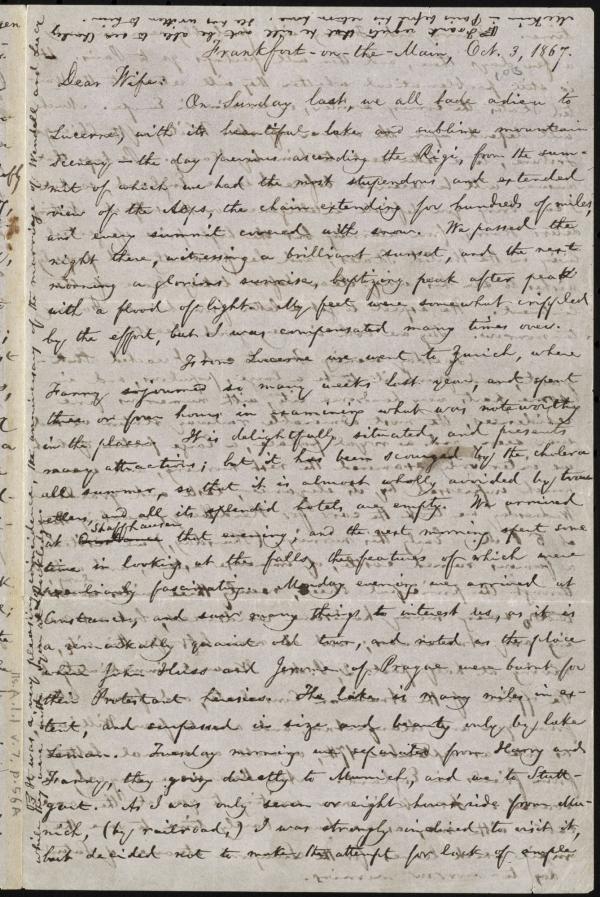 Frankfort-on-the-Main, Oct. 3, 1867.
Dear Wife:
On Sunday last, we all bade adieu to
Lucerne, with its beautiful lake and sublime mountain
scenery—the day previous ascending the Rigi, from the sum-
mit of which we had the most stupendous and extended
view of the Alps, the chain extending for hundreds of miles,
and every summit covered with snow. We passed the
night there, witnessing a brilliant sunset, and the next
morning a glorious sunrise, baptizing peak after peak
with a flood of light. My feet were somewhat crippled
by the effort, but I was compensated many times over.
From Lucerne we went to Zurich, where
Fanny sojourned so many weeks last year, and spent
three or four hours in examining what was noteworthy
in the place. It is delightfully situated, and presents
many attractions; but it has been scourged by the cholera
all summer, so that it is almost wholly avoided by trav-
ellers, and all its splendid hotels are empty. We arrived
Shaffhausen
at Constance that evening, and the next morning spent some
time in looking at the falls, the features of which were
peculiarly fascinating. Monday evening we arrived at
Constance, and saw many things to interest us, as it is
a remarkably quaint old town, and noted as the place
where John Huss and Jerome of Prague were burnt for
their Protestant heresies. The lake is many miles in ex-
tent, and surpassed in size and beauty only by lake
Leman. Tuesday morning we separated from Harry and
Fanny, they going directly to Munich, and we to Stutt-
gart. As I was only seven or eight hours' ride from Mu-
nich, (by railroad,) I was strongly inclined to visit it,
but decided not to make the attempt for lack of ample
Ms. A.1.1 v.7, p.58A